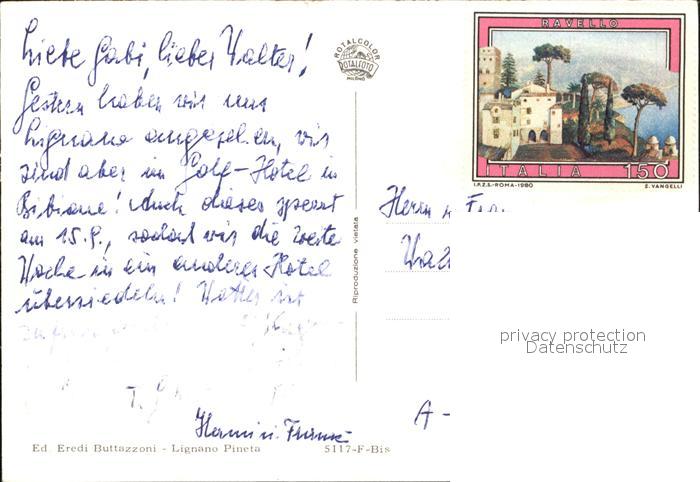 Liebe Gabi, lieber Walter!
Gestern haben wir uns
Lignano angesehen, wir
sind aber im Golf-Hotel in
Bibione! Auch dieses sperrt
am 15.9., sodaß wir die zweite
Woche in ein anderes Hotel
übersiedeln! Wetter ist
ROTALCOLOR
ROTALFOTO
MILANO
Riproduzione vietata
RAVELLO
ITALIA 150
I.P.Z.S.-ROMA-1980 E. VANGELLI
Herrn u. Frau
privacy protection
Datenschutz
A -
Ed. Eredi Buttazzoni - Lignano Pineta 5117-F-Bis